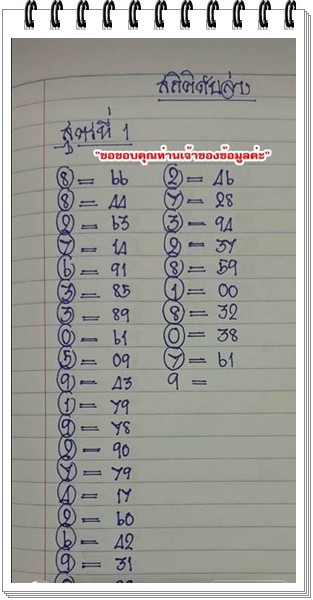 สถิติดับล่าง
สูตรที่ 1
"ขอขอบคุณท่านเจ้าของข้อมูลค่ะ"
8 = 66
8 = 44
2 = 63
7 = 14
6 = 91
3 = 85
3 = 89
0 = 61
5 = 09
9 = 43
1 = 79
9 = 78
2 = 90
7 = 79
4 = 17
2 = 60
6 = 42
9 = 31
2 = 46
7 = 28
3 = 94
2 = 37
8 = 59
1 = 00
8 = 32
0 = 38
7 = 61
9 =